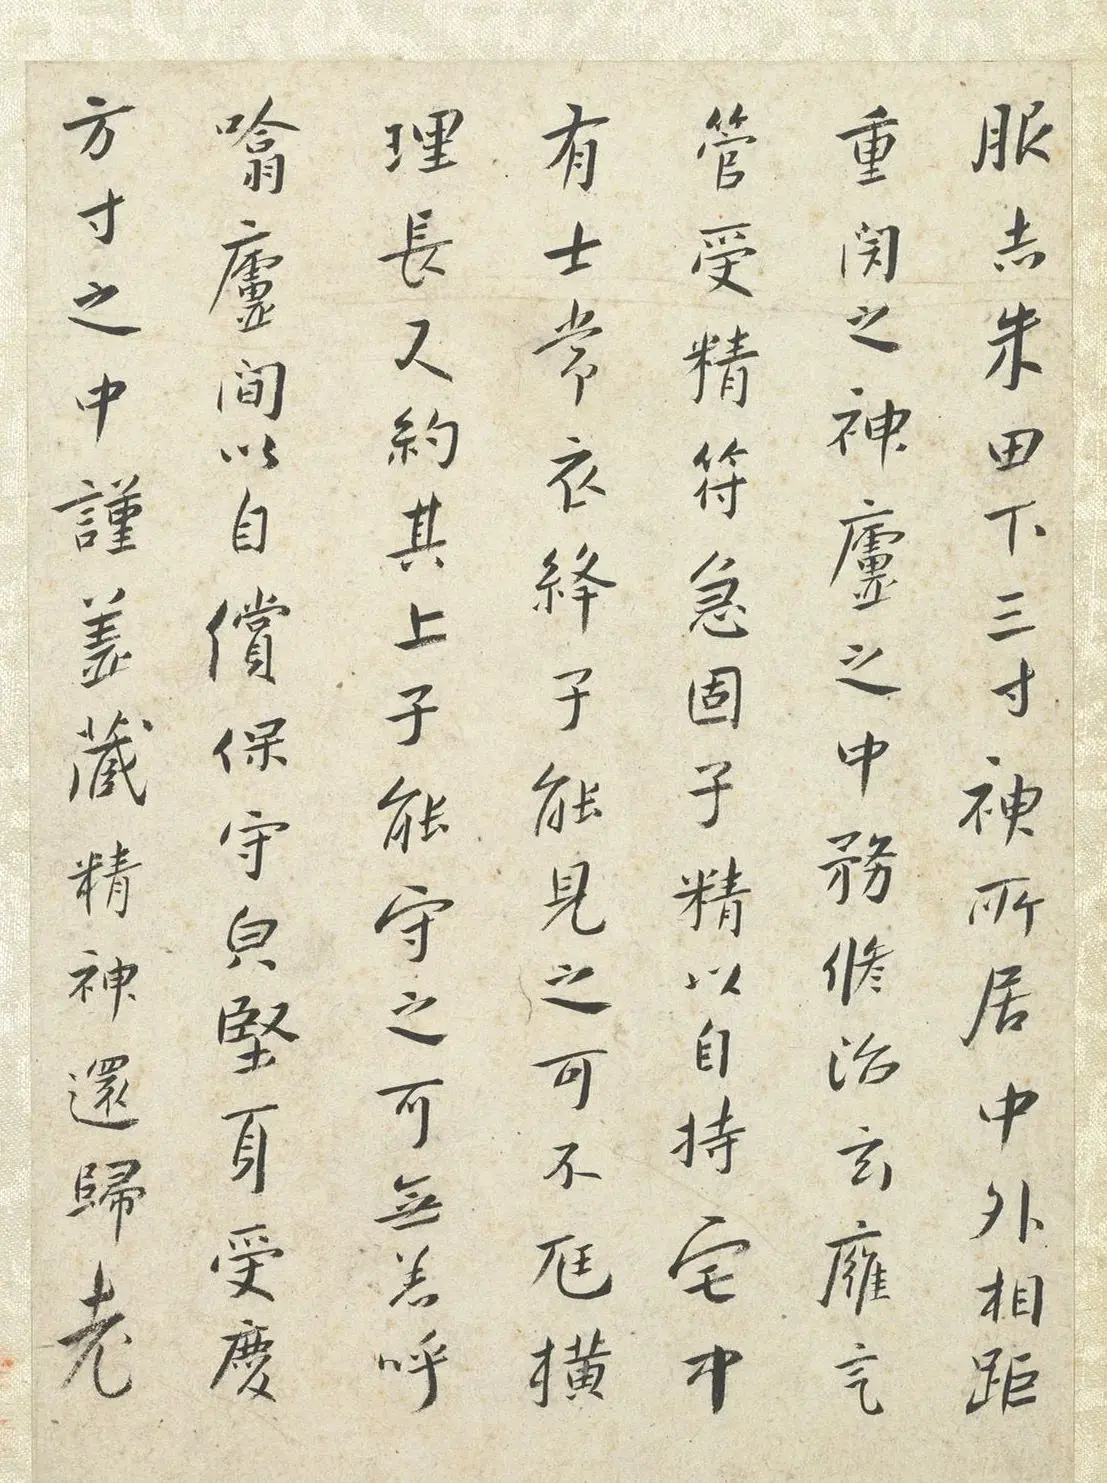 服赤朱田下三寸神所居中外相距
重閇之神廬之中務修治玄膺气
管受精符急固子精以自持宅中
有士常衣絳子能見之可不尫橫
理長尺約其上子能守之可無恙呼
噏廬間以自償保守完堅身受慶
方寸之中謹蓋藏精神還歸老